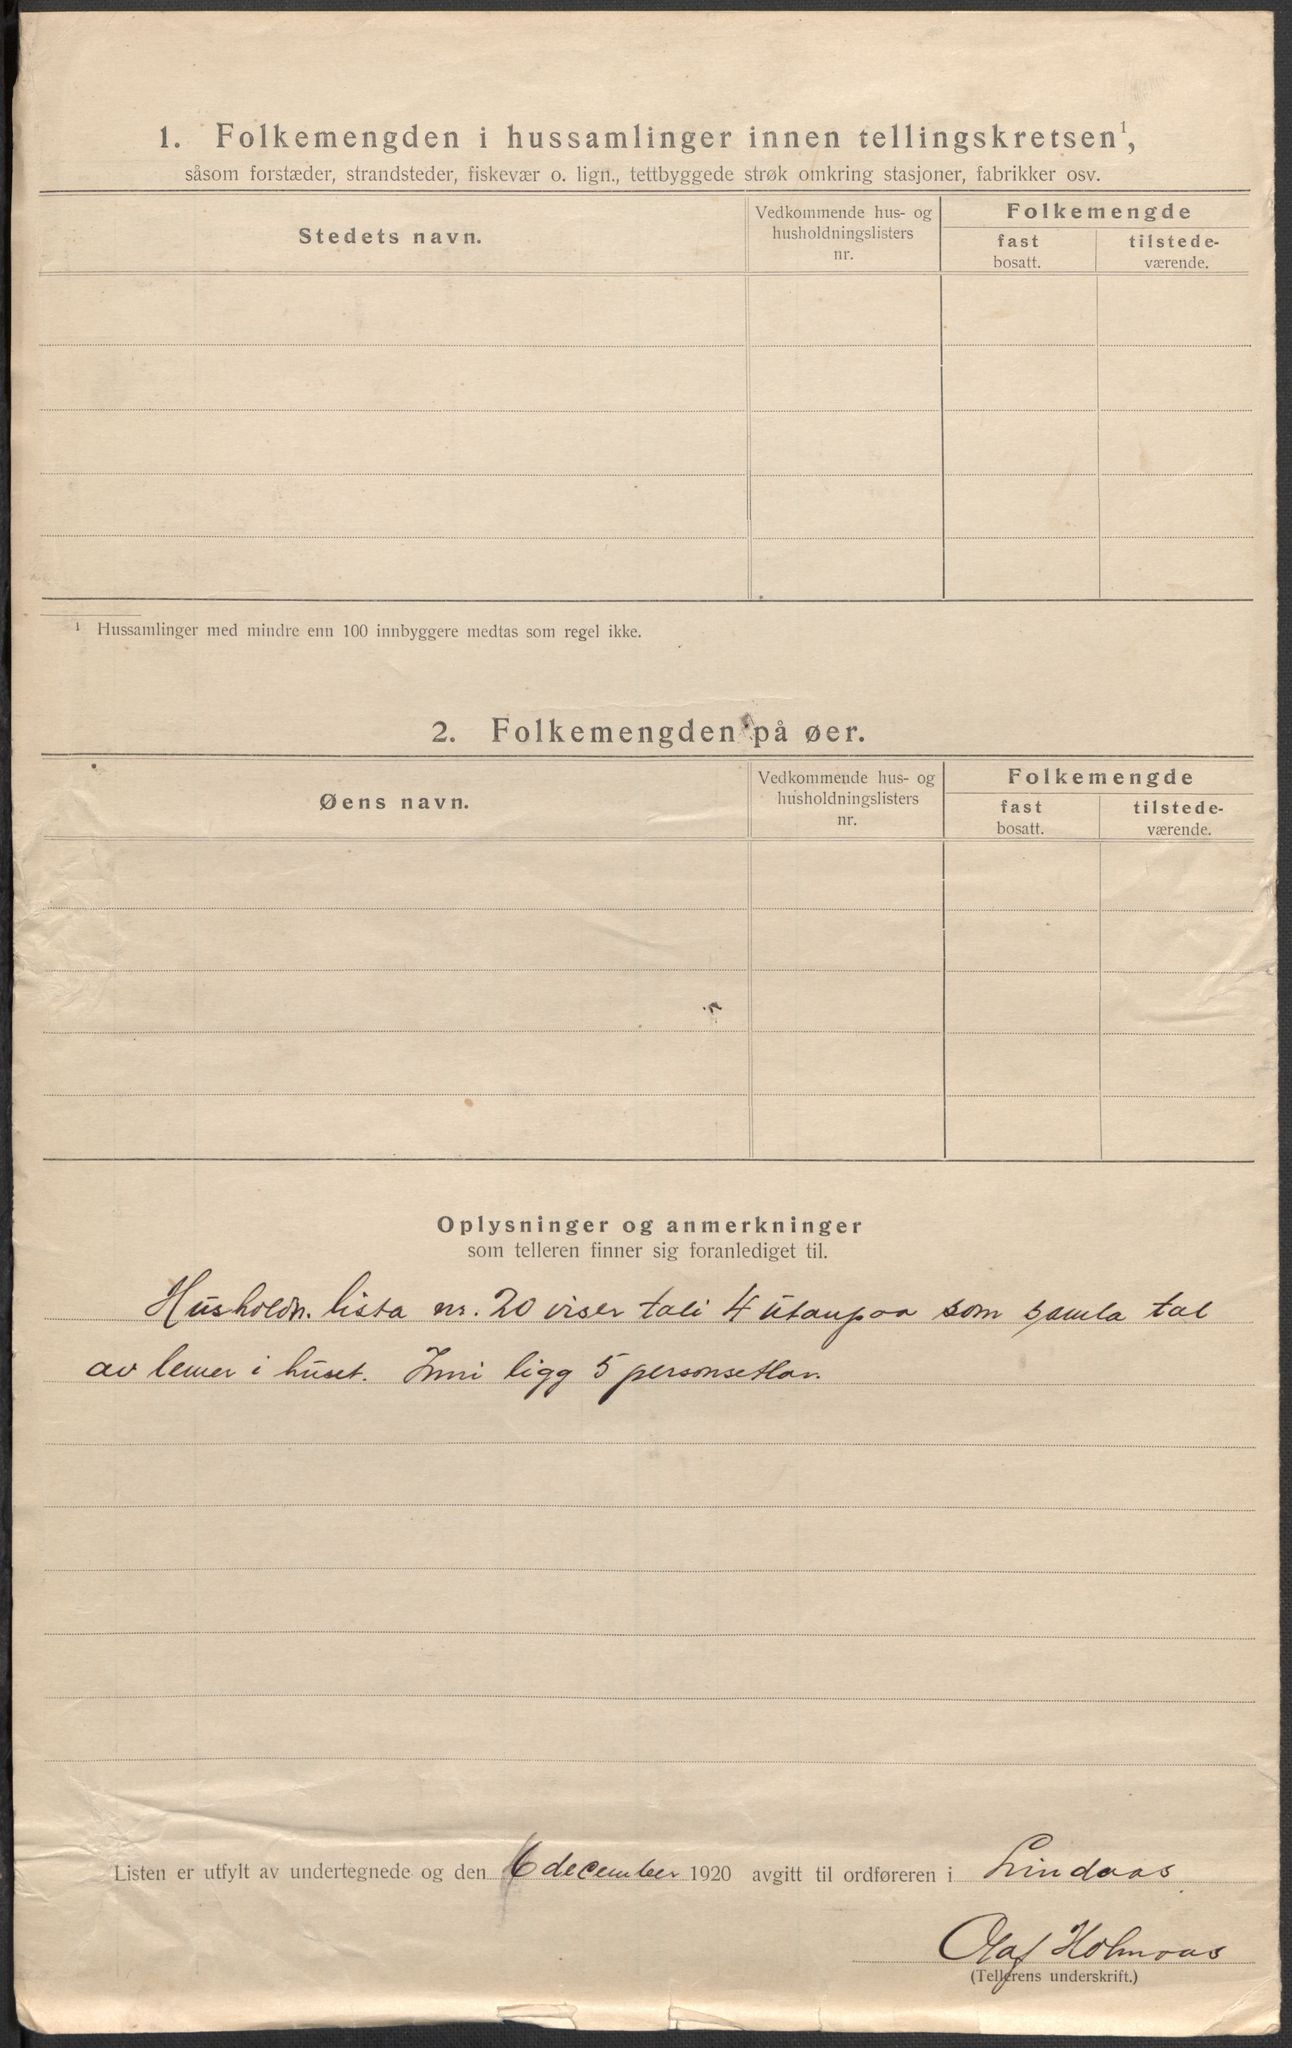 1. Folkemengden i hussamlinger innen tellingskretsen¹,
såsom forstæder, strandsteder, fiskevær o. lign., tettbyggede strøk omkring stasjoner, fabrikker osv.
Stedets navn.
Vedkommende hus- og
husholdningslisters
nr.
Folkemengde
fast
bosatt.
tilstede-
værende.
¹ Hussamlinger med mindre enn 100 innbyggere medtas som regel ikke.
2. Folkemengden på øer.
Øens navn.
Vedkommende hus- og
husholdningslisters
nr.
Folkemengde
fast
bosatt.
tilstede-
værende.
Oplysninger og anmerkninger
som telleren finner sig foranlediget til.
Husholdn. lista nr. 20 viser tali 4 utanpaa som samla tal
av lemer i huset. Inni ligg 5 personsetlar.
Listen er utfylt av undertegnede og den 6 december 1920 avgitt til ordføreren i Lindaas.
Olaf Holmaas
(Tellerens underskrift.)